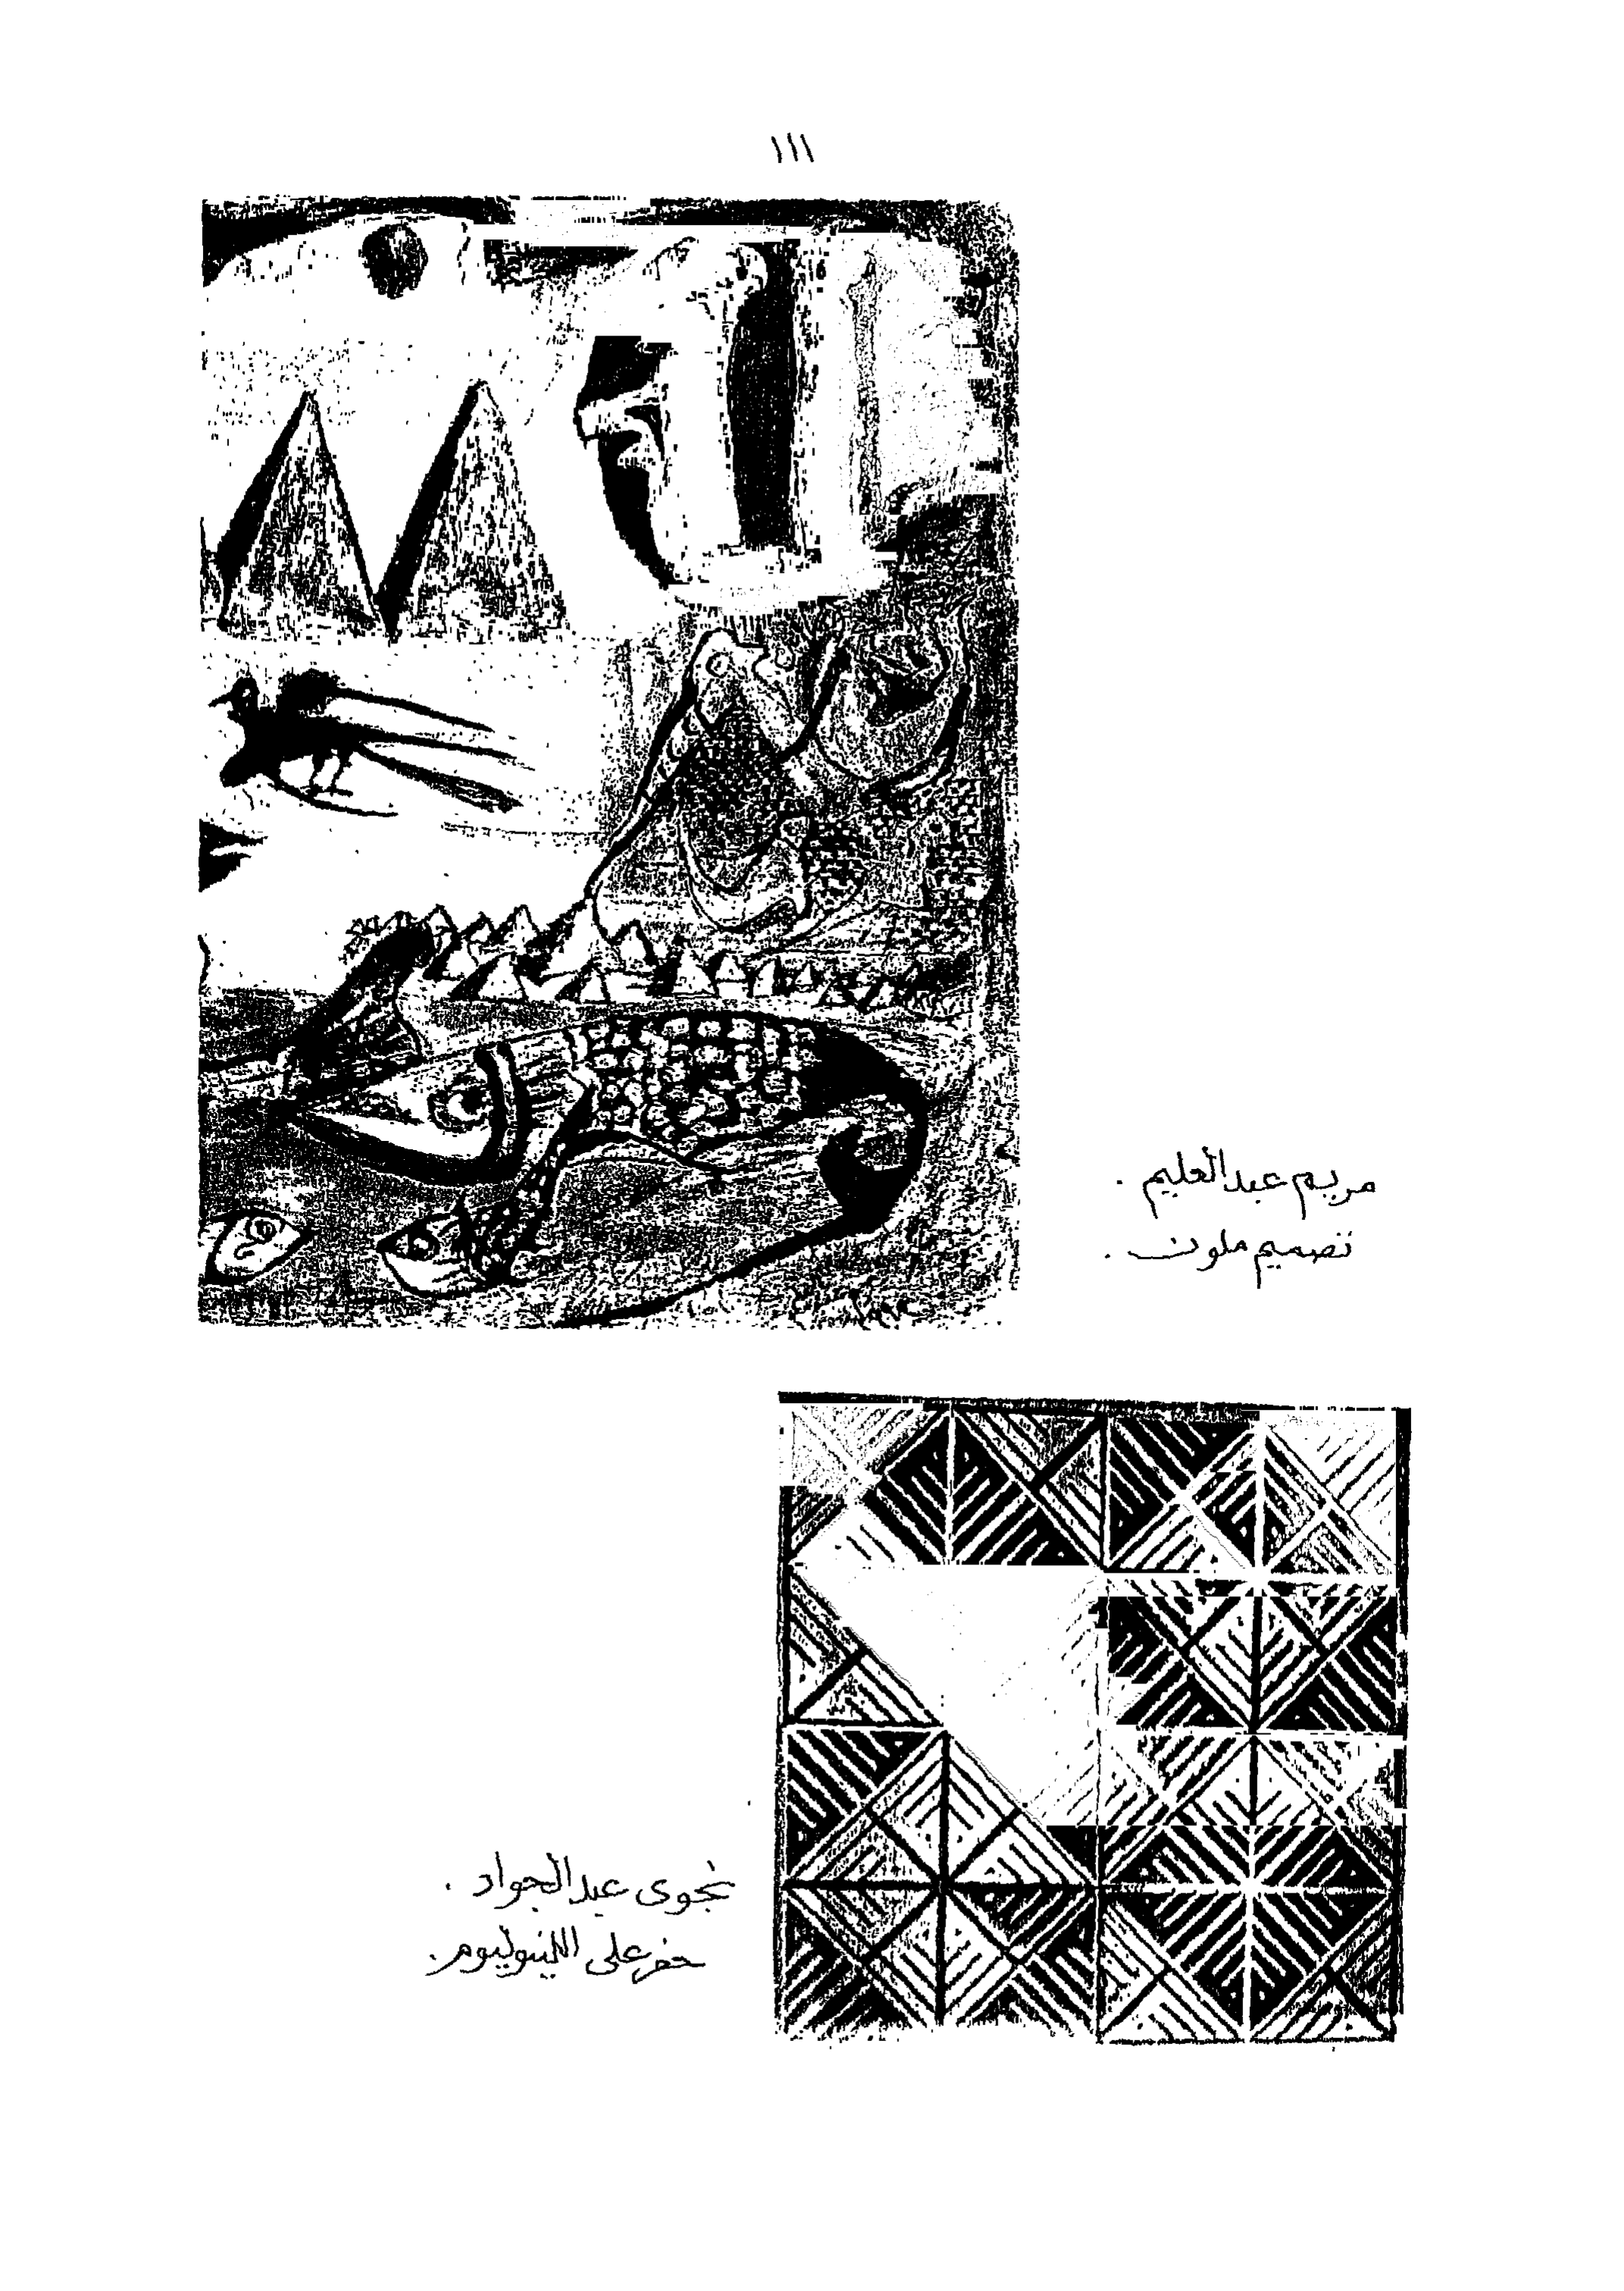 ١١١
مريم عبد العليم .
تصميم ملون .
نجوى عبد الجواد .
حفر على اللينوليوم .